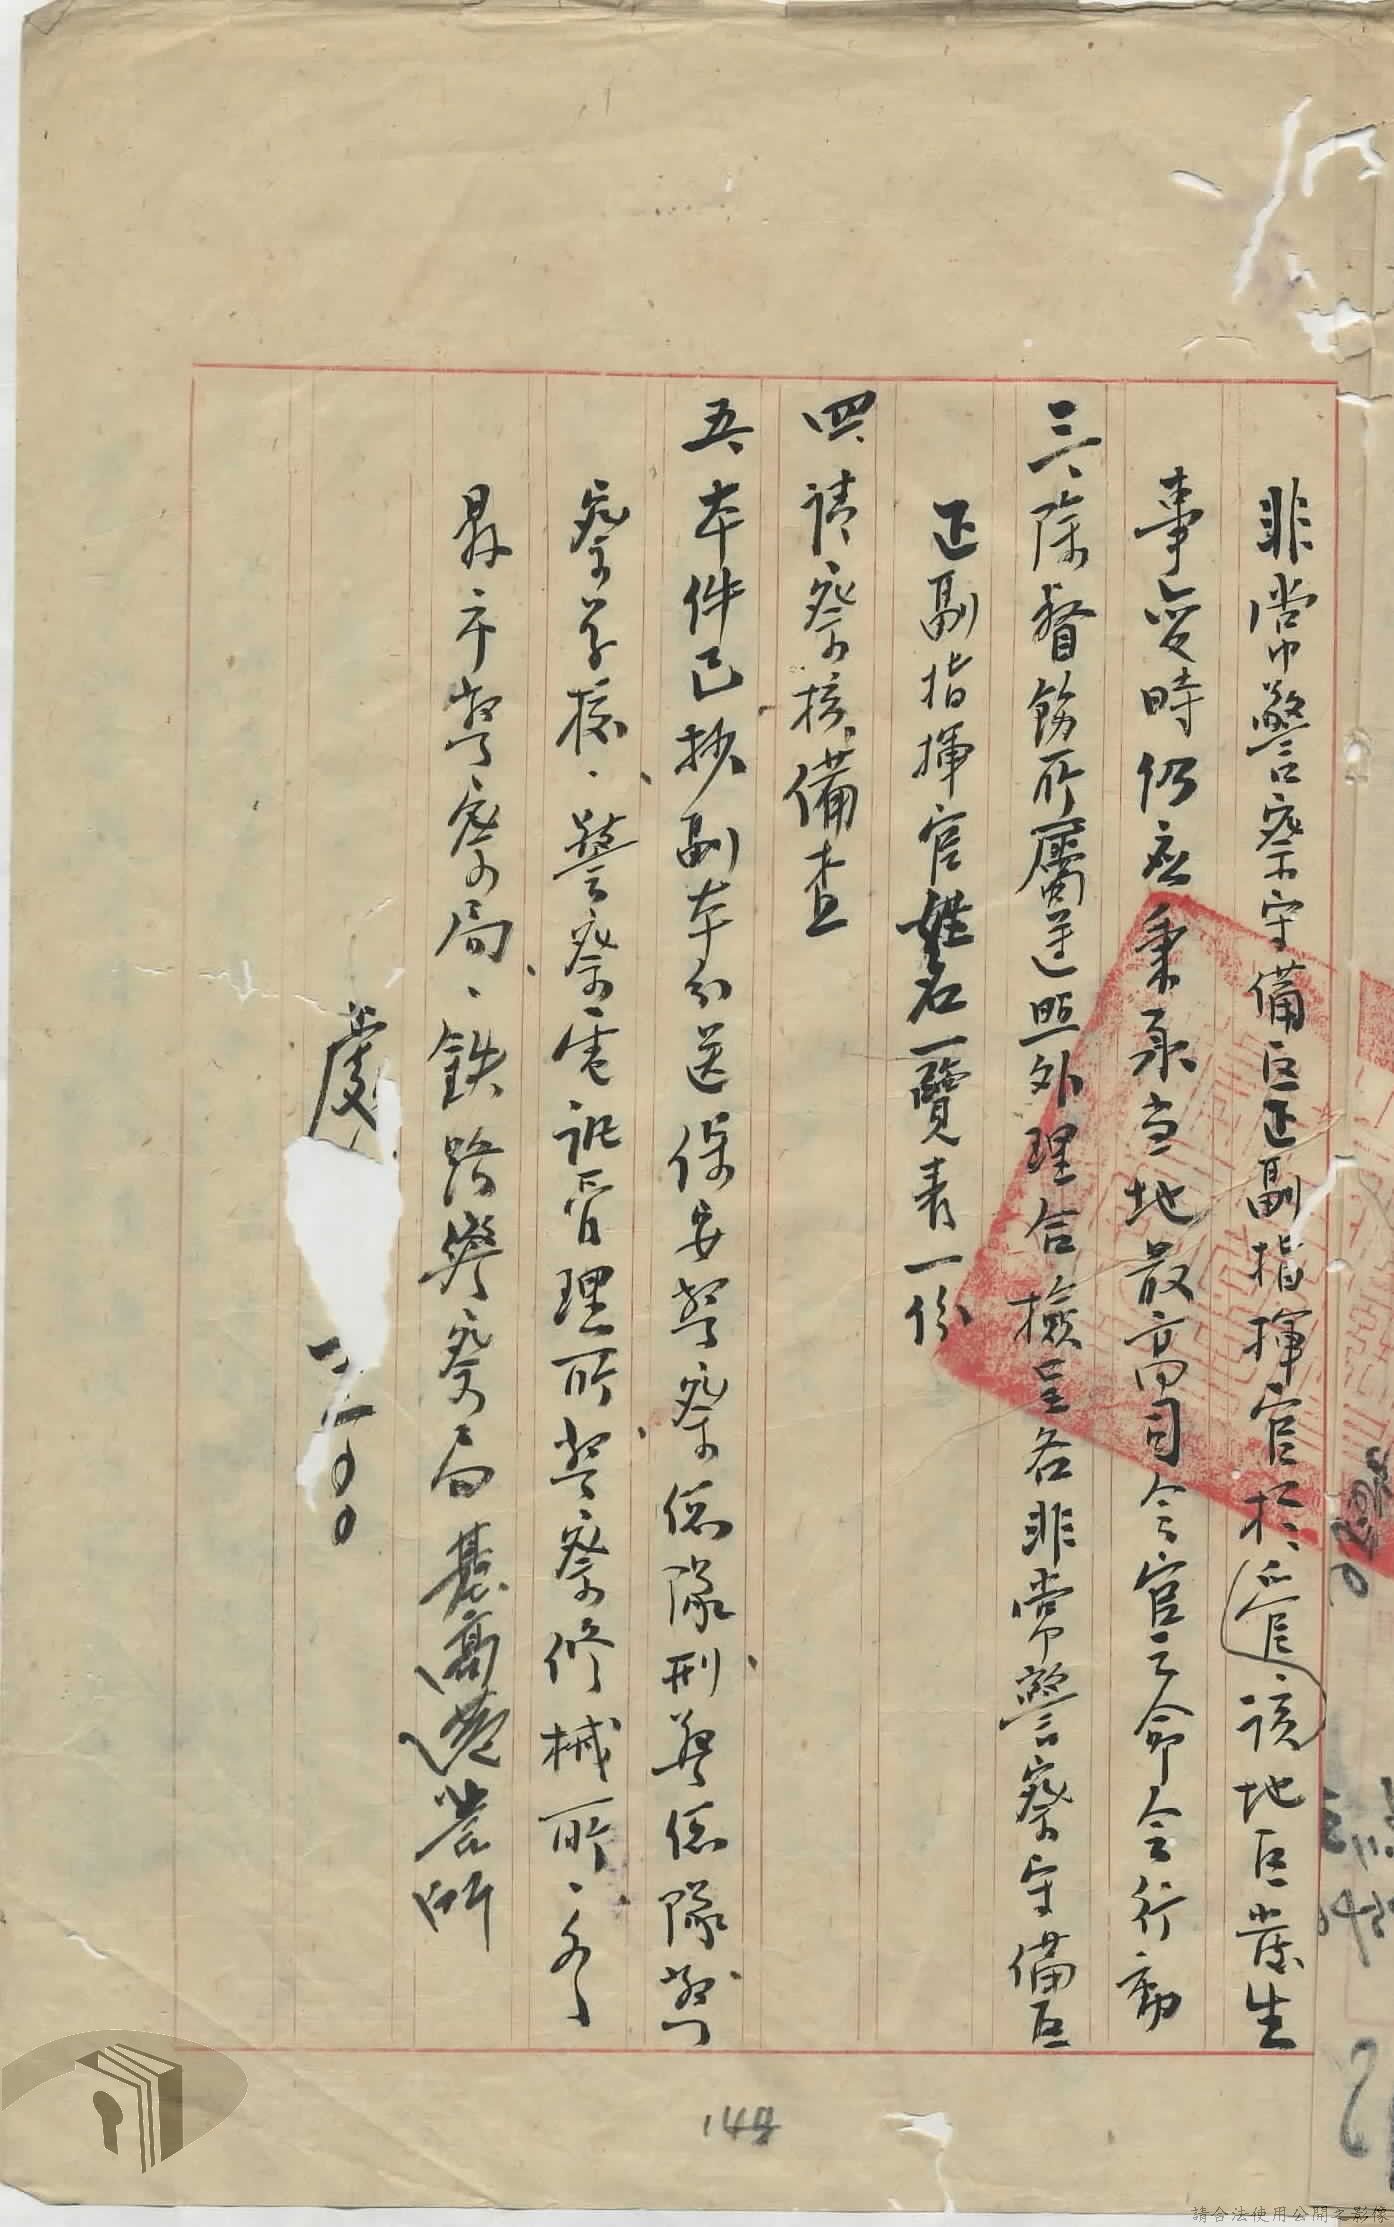 非常警察守備区正副指揮官於管該地区發生
事变時仍应秉承当地最高司令官之命令行動
三、除督飭所屬遵照外理合檢呈各非常警察守備区
正副指揮官姓名一覽表一份
四、请察核備查
五、本件已抄副本分送保安警察总隊、刑警总隊、警
察学校、警察電訊管理所、警察修械所、各
县市警察局、鉄路警察局、基高港警所
148
請合法使用公開之影像